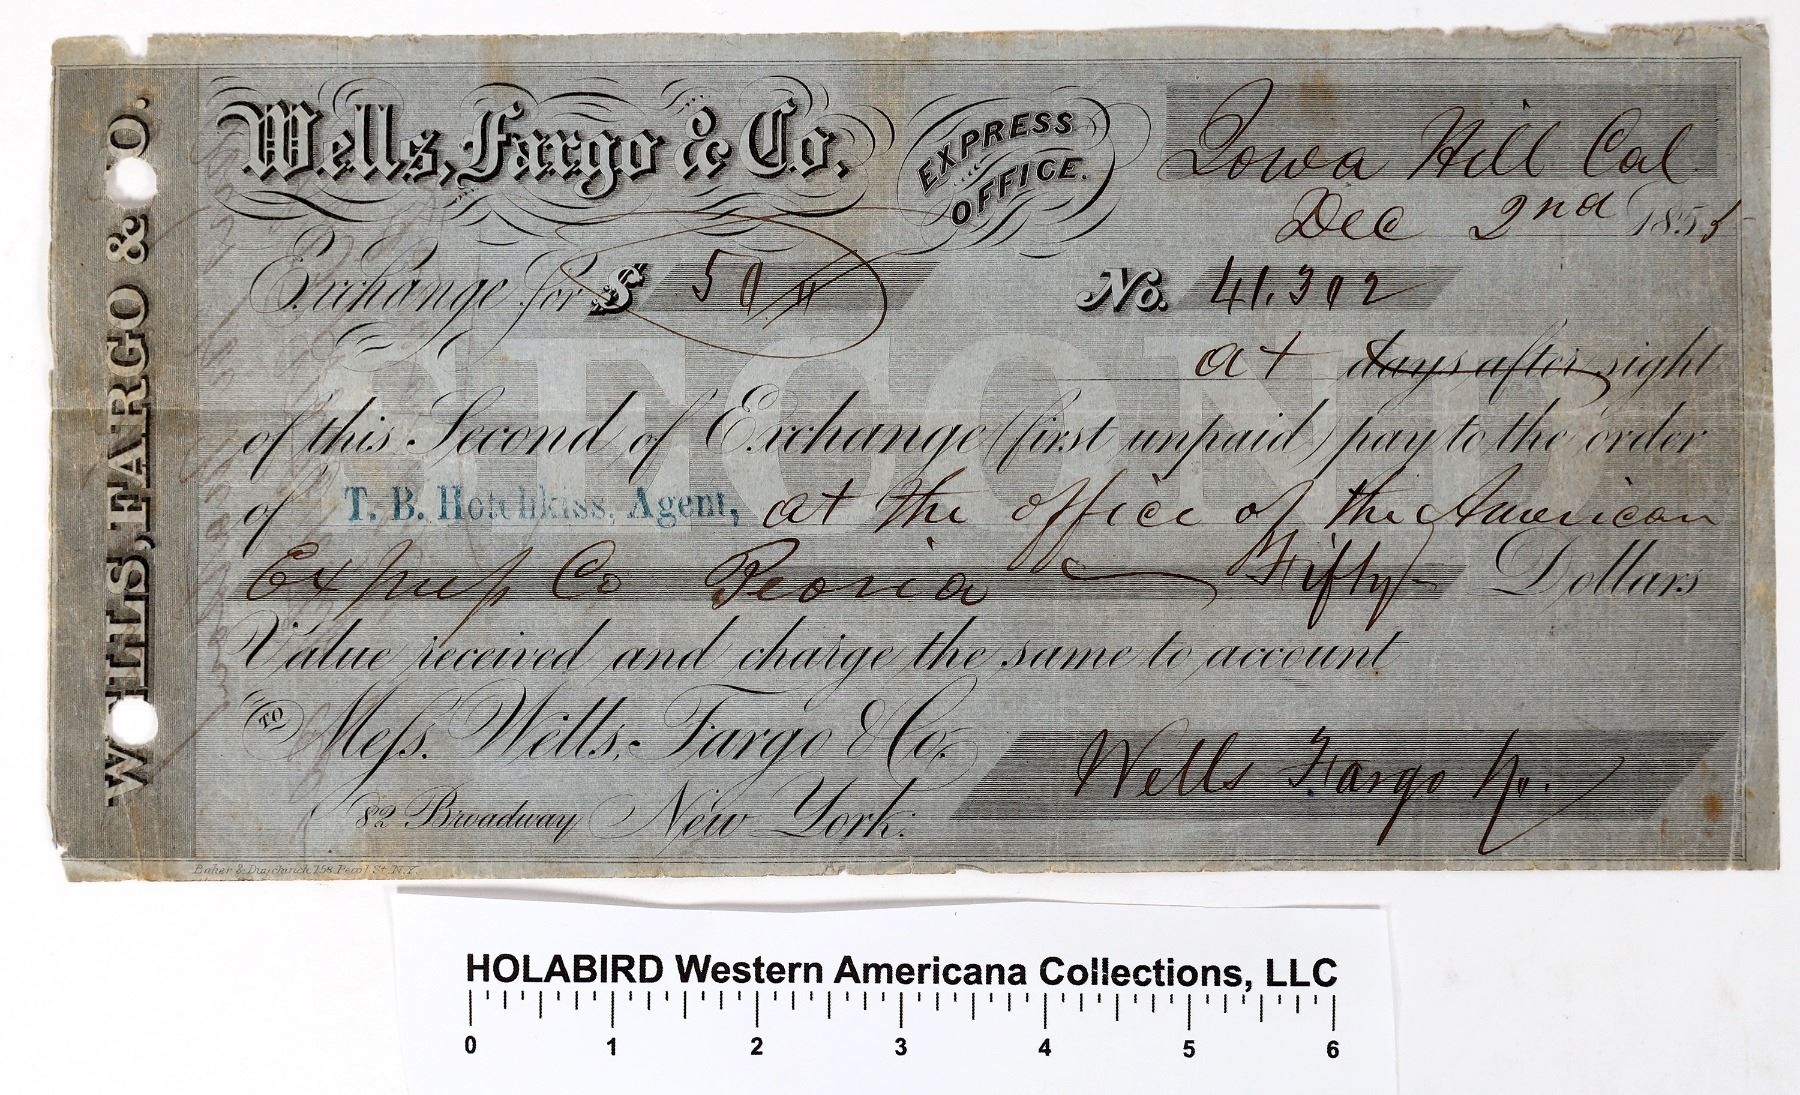 WELLS, FARGO & CO.
Wells, Fargo & Co. EXPRESS OFFICE.
Iowa Hill Cal
Dec 2nd 1855
Exchange for $ 50 No. 41.302
SECOND
at days after sight
of this Second of Exchange (first unpaid) pay to the order
of T. B. Hotchkiss, Agent, at the office of the American
Express Co Peoria Fifty Dollars
Value received and charge the same to account
TO Mess. Wells, Fargo & Co. Wells Fargo
82 Broadway New York.
Baker & 158 Pearl St. N.Y.
HOLABIRD Western Americana Collections, LLC
0 1 2 3 4 5 6